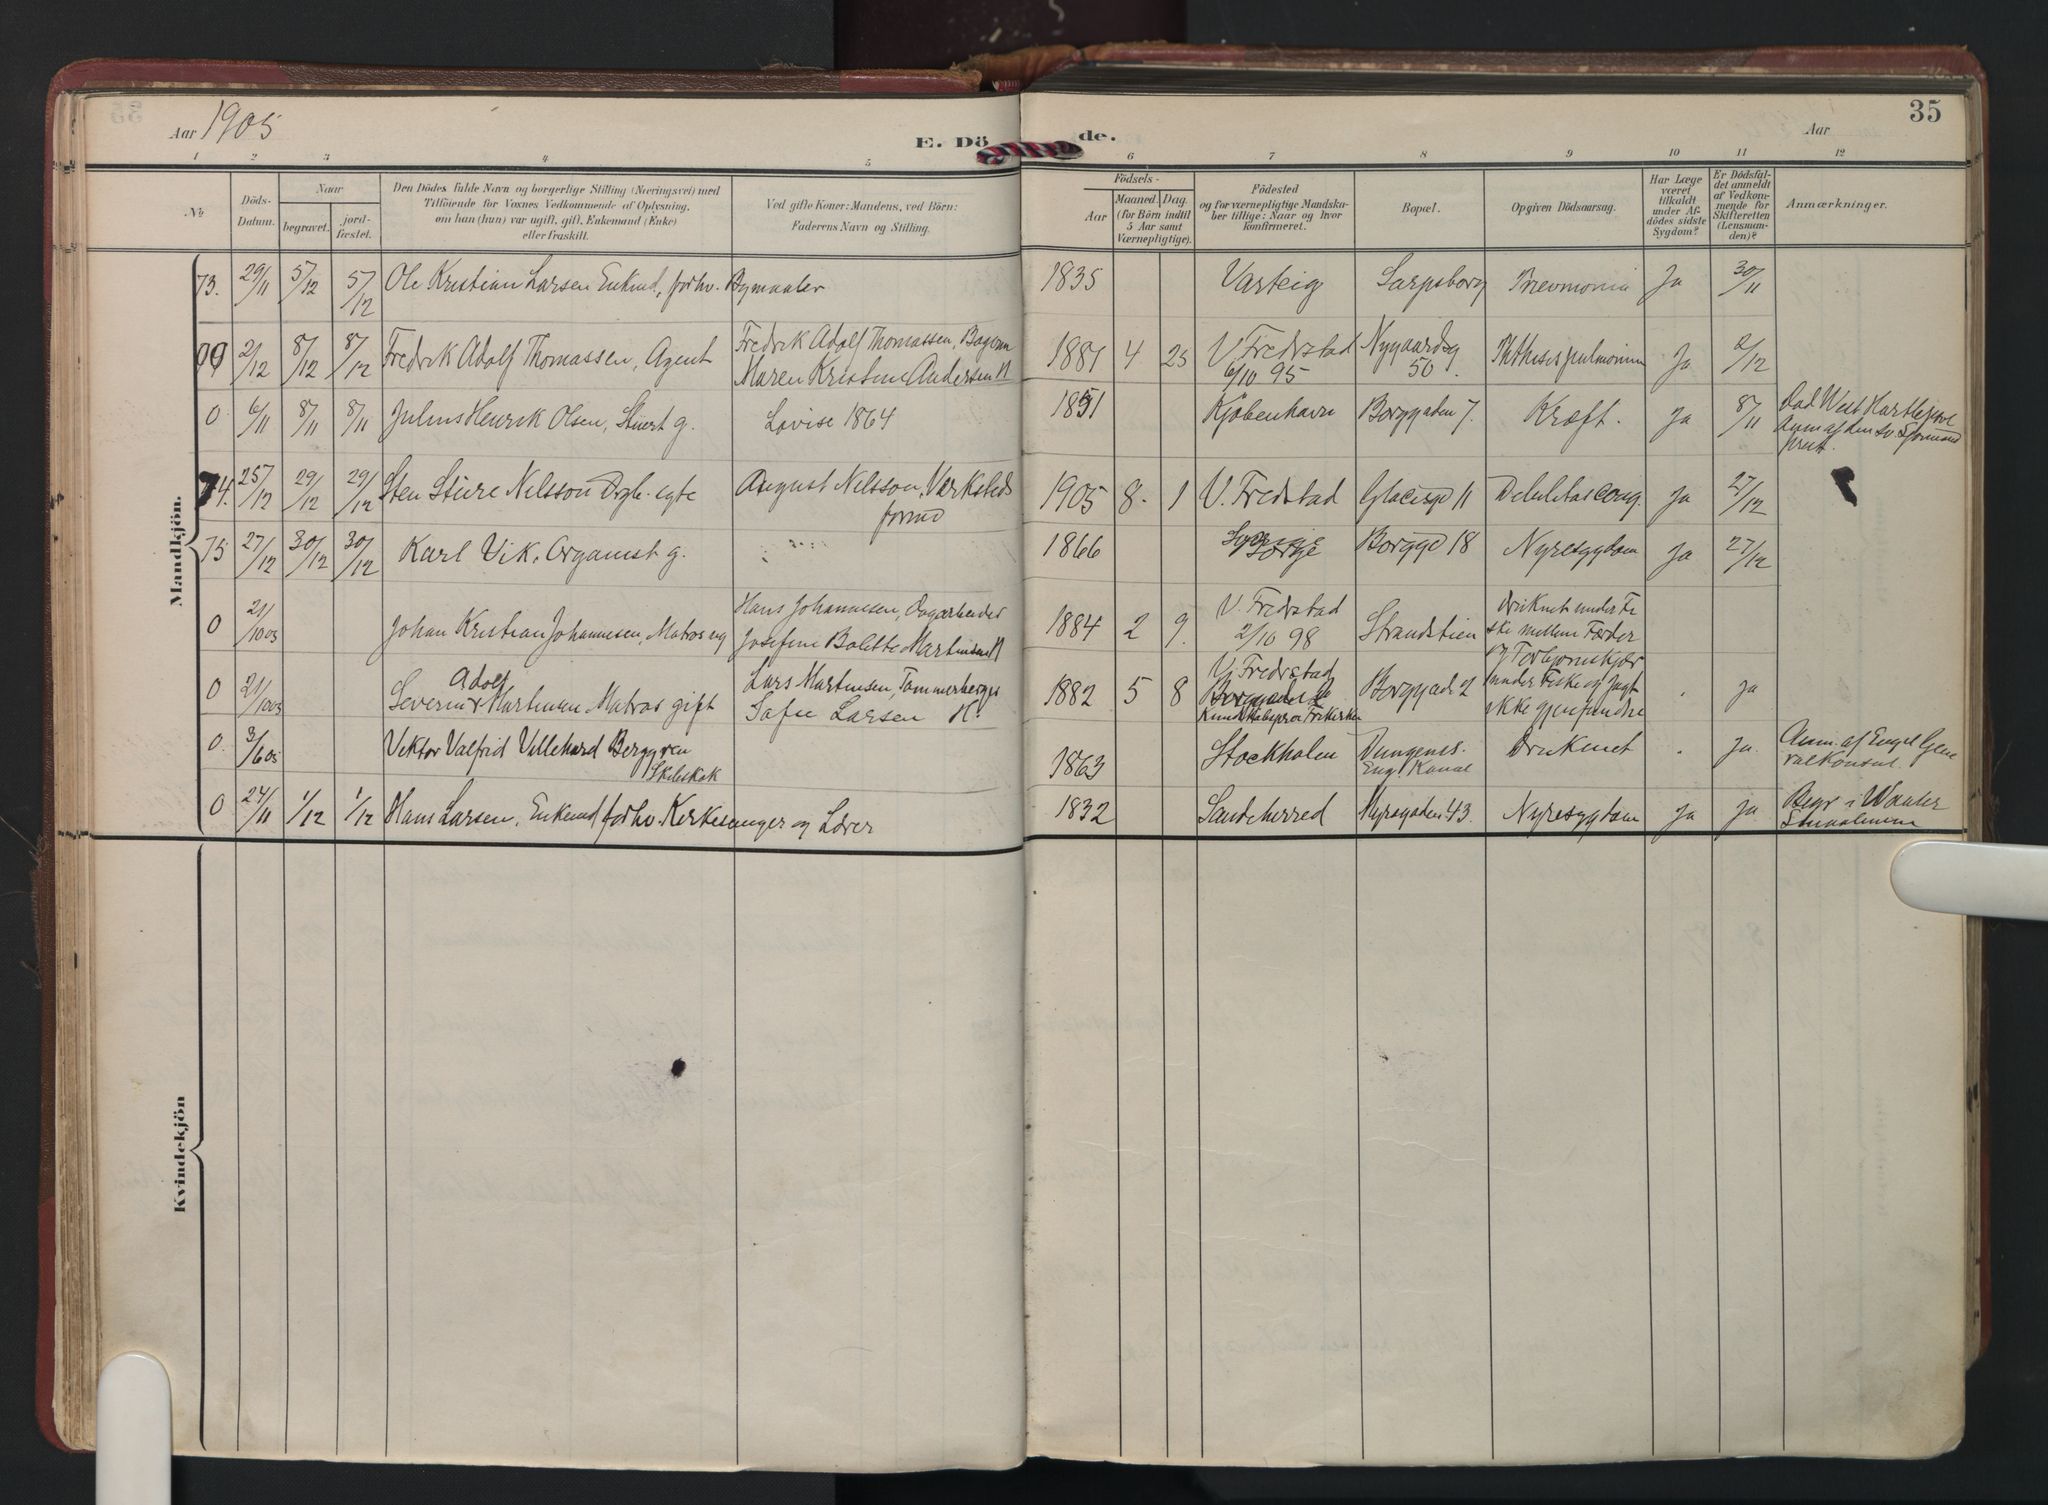 35
Aar 1905
E. Dö de.
Aar
1 2 3 4 5 6 7 8 9 10 11 12
No
Döds-Datum.
Naar
begravet.
jord-fæstet.
Den Dödes fulde Navn og borgerlige Stilling (Næringsvei) med
Tilföiende for Voxnes Vedkommende af Oplysning,
om han (hun) var ugift, gift, Enkemand (Enke)
eller fraskilt.
Ved gifte Koner: Mandens, ved Börn:
Faderens Navn og Stilling.
Födsels-
Aar
Maaned. Dag.
(for Börn indtil
5 Aar samt
Værnepligtige).
Födested
og for værnepligtige Mandska-
ber tillige: Naar og hvor
konfirmeret.
Bopæl.
Opgiven Dödsaarsag.
Har Læge
været
tilkaldt
under Af-
dödes sidste
Sygdom?
Er Dödsfal-
det anmeldt
af Vedkom-
mende for
Skifteretten
(Lensman-
den)?
Anmærkninger.
Mandkjön.
73. 29/11 5/12 5/12 Ole Kristian Larsen Enkmd, forhv. Bymaaler 1835 Varteig Sarpsborg Pnevmonia Ja 30/11
2/12 8/12 8/12 Fredrik Adolf Thomassen, Agent
Fredrik Adolf Thomassen,
Maren Kristine Andersen
1881 4 25 V. Fredrstad
6/10 95
Nygaardsg
50
Phthisis pulmonum Ja 2/12
0 6/11 8/11 8/11 Julius Henrik Olsen, Stuert g. Lovise 1864 1851 Kjöbenhavn Borggaden 7. Kræft. Ja 8/11
Död West Hartlepool
Anm af den
prest.
74. 25/12 29/12 29/12 Sten Sture Nilsson Drgb. egte
August Nilsson, Værksteds
formd
1905 8 1 V. Fredstad Glacisgd 11 Debilitas cong. Ja 27/12
75 27/12 30/12 30/12 Karl Vik. Organist g. 1866 Sverige Borggd 18 Nyresygdom Ja 27/12
0 21/10 05 Johan Kristian Johannesen, Matros ug
Hans Johannesen, Dagarbeider
Josefine Bolette Martinsen
1884 2 9. V. Fredrstad
2/10 98
Strandstien
druknet under Fi
ske mellem Færder
og Torbjörnskjær
0 21/10 05 Severin Adolf Martinsen Matros gift
Lars Martinsen, Tømmerhugger
Sofie Larsen
1882 5 8 V. Fredrstad
Borggade 2
under Fiske og Jagt
ikke gjenfundne
Ja
0. 3/6 05 Viktor Valfrid Villehard Berggren
Skibskok
1863 Stockholm
Dungenes.
Eng. Kanal
Druknet Ja
Anm. af Engel Gene
ralkonsul.
0 24/11 1/12 1/12 Hans Larsen, Enkemd forhv. Kirkesanger og Lærer 1832 Sandeherred Nyregaden 43. Nyresygdom Ja Ja
Begr i Waaler
Smaalenene
Kvindekjön